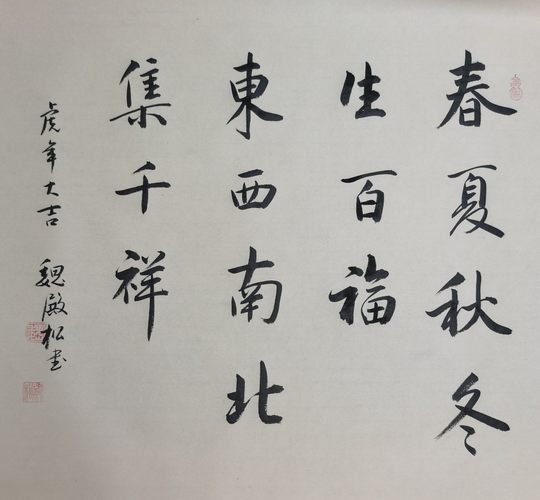 春夏秋冬
生百福
東西南北
集千祥
虎年大吉 魏殿松书